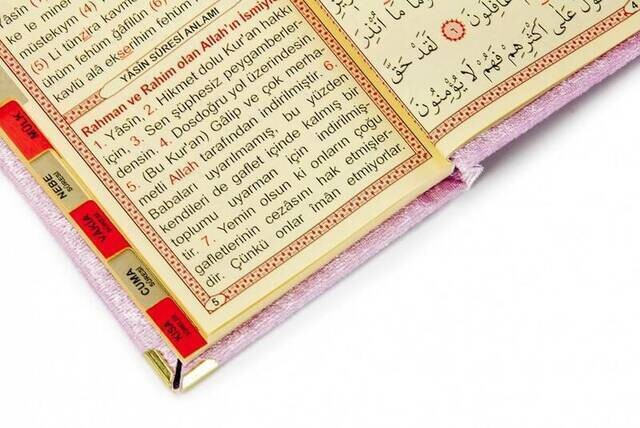 ke le mine
müstekıym (4)
(5) Li tünzira kavmen
ühüm fehüm ğâfilûn
kavlü alâ ekserihim fehüm
YÂSİN SÛRESİ ANLAMI
Rahman ve Rahim olan Allah'ın İsmiyle
1. Yâsîn, 2. Hikmet dolu Kur'an hakkı
için, 3. Sen şüphesiz peygamberler-
densin. 4. Dosdoğru yol üzerindesin.
5. (Bu Kur'an) Gâlip ve çok merha-
metli Allah tarafından indirilmiştir. 6.
Babaları uyarılmamış, bu yüzden
kendileri de gaflet içinde kalmış bir
toplumu uyarman için indirilmiş-
tir. 7. Yemin olsun ki onların çoğu
gafletlerinin cezasını hak etmişler-
dir. Çünkü onlar îmân etmiyorlar.
5
مَا أُنْذِرَ
غَافِلُونَ ٦ لَقَدْ حَقَّ
الْقَوْلُ عَلَى أَكْثَرِهِمْ فَهُمْ لَا يُؤْمِنُونَ
MÜLK
NEBE SÛRESİ
VAKIA SÛRESİ
CUMA SÛRESİ
KISA SÛRELER